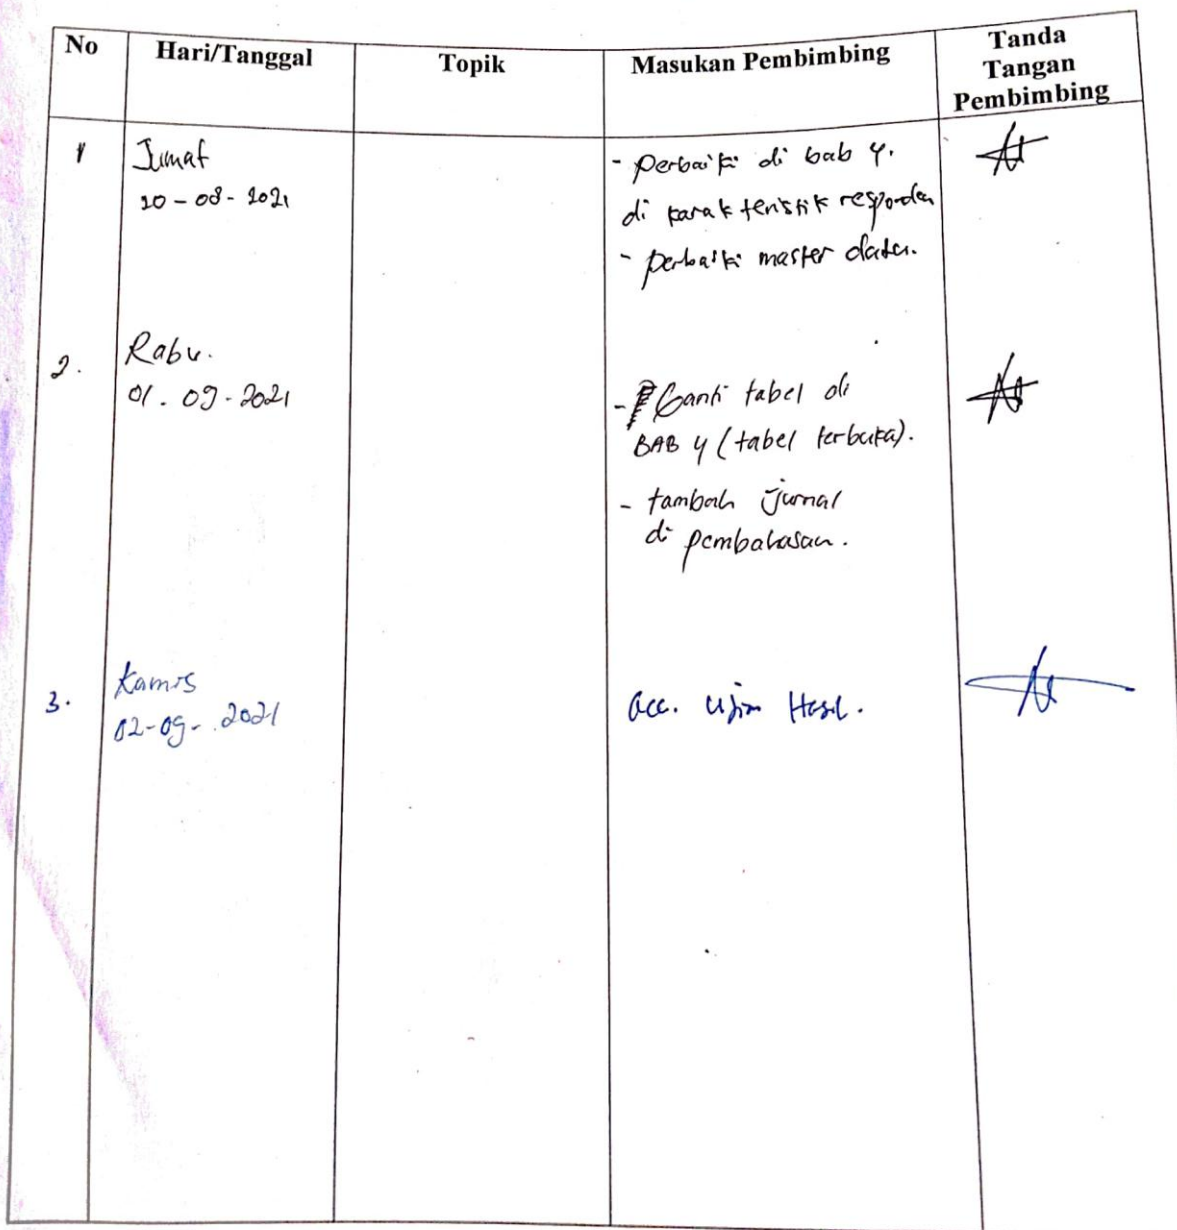 No
Hari/Tanggal
Topik
Masukan Pembimbing
Tanda
Tangan
Pembimbing
1
Jumat
20-08-2021
- perbaiki di bab 4.
di karakteristik responden
- perbaiki master data.
2.
Rabu.
01.09-2021
- Ganti tabel di
BAB 4 (tabel terbuka).
- tambah jurnal
di pembahasan.
3.
Kamis
02-09-2021
acc. ujian Hasil.